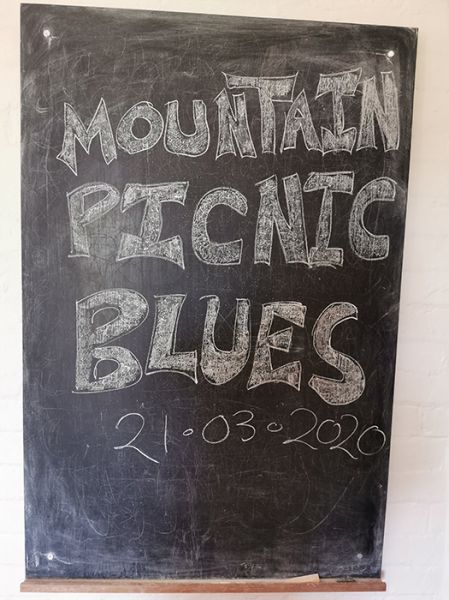 MOUNTAIN
PICNIC
BLUES
21.03.2020